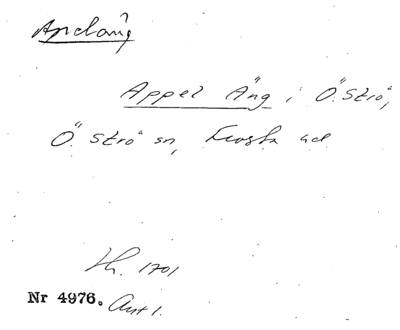 Apeläng
Appel Äng i Ö. Strö,
Ö. Strö sn, Frosta hd
Lh. 1701
Nr 4976. Avt 1.